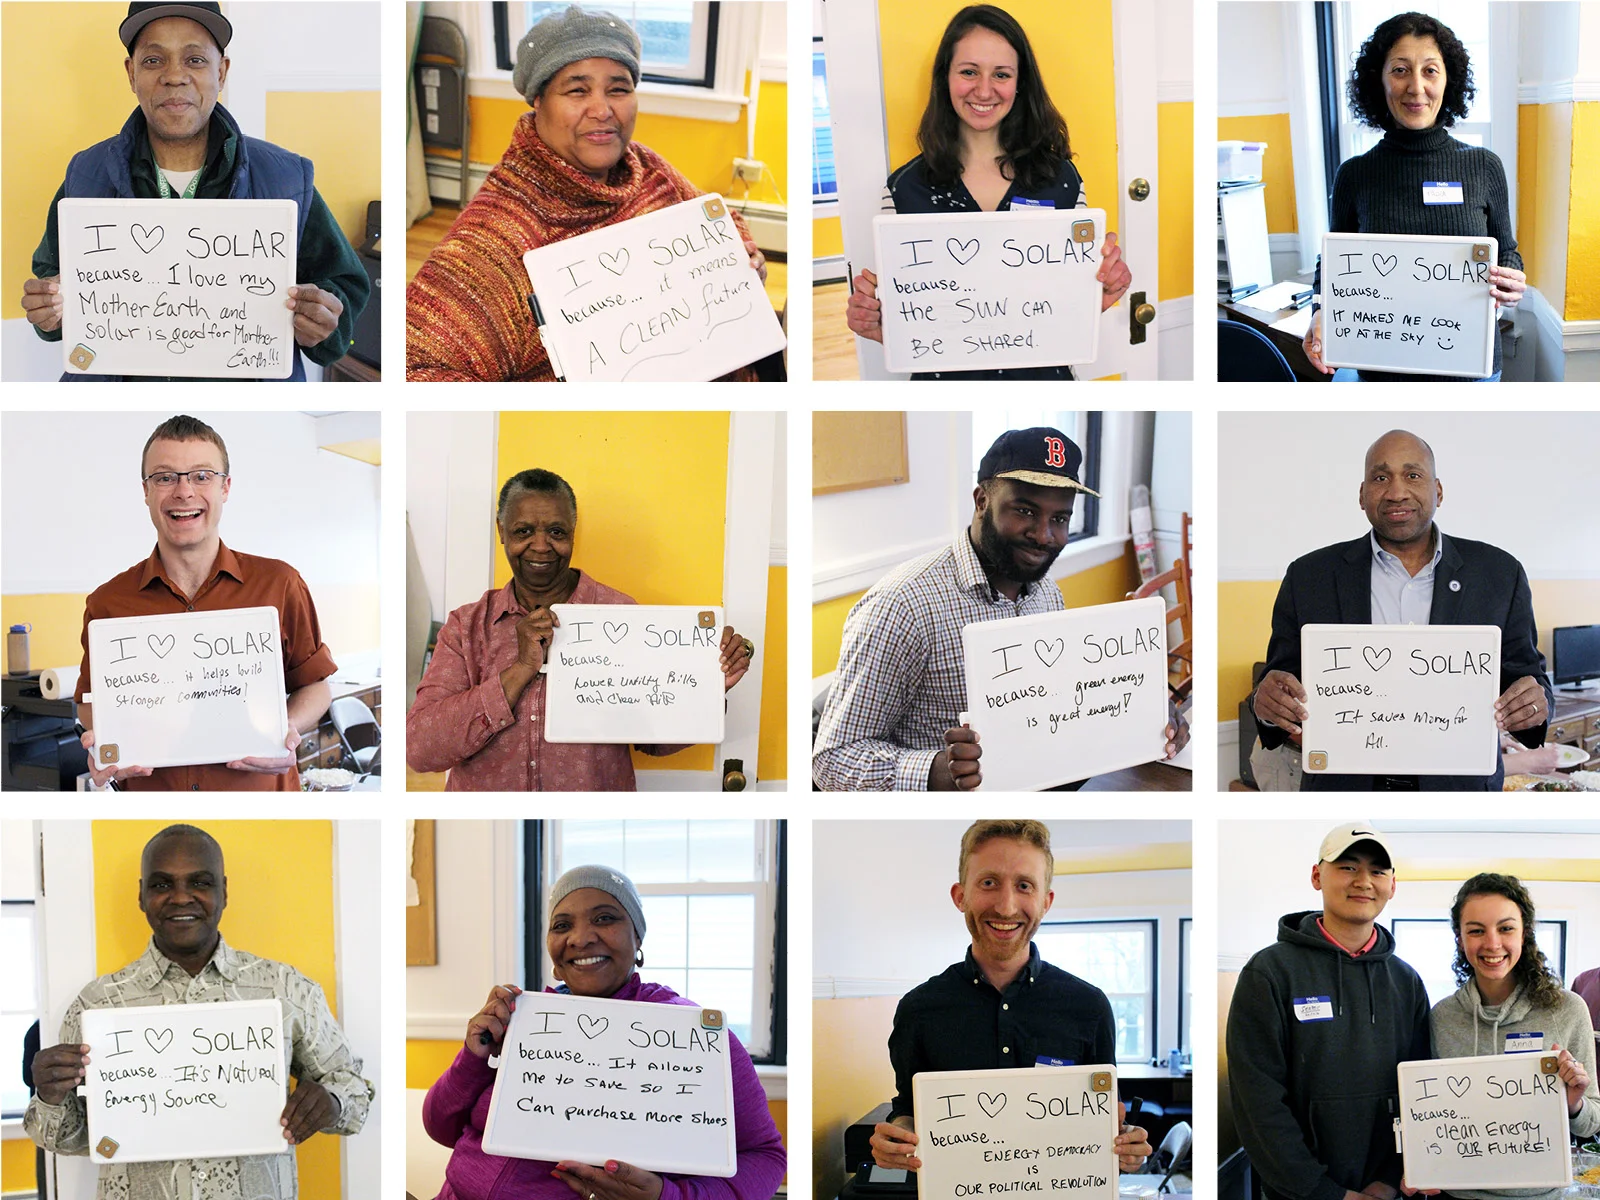 I ♡ SOLAR
because... I love my
Mother Earth and
solar is good for Morther
Earth!!!
I ♡ SOLAR
because... it means
A CLEAN future
I ♡ SOLAR
because...
the SUN CAN
BE SHARED.
Hello
I ♡ SOLAR
because...
IT MAKES ME LOOK
UP AT THE SKY
I ♡ SOLAR
because... it helps build
stronger communities!
I ♡ SOLAR
because...
Lower Utility Bills
and Clean
B
I ♡ SOLAR
because... green energy
is great energy!
I ♡ SOLAR
because...
It saves money for
All.
I ♡ SOLAR
because... It's Natural
Energy Source
I ♡ SOLAR
because... It Allows
Me to SAVE SO I
Can purchase More Shoes
Hello
I ♡ SOLAR
because...
ENERGY DEMOCRACY
IS
OUR POLITICAL REVOLUTION
Hello
Hello
Anna
I ♡ SOLAR
because...
Clean Energy
is OUR FUTURE!